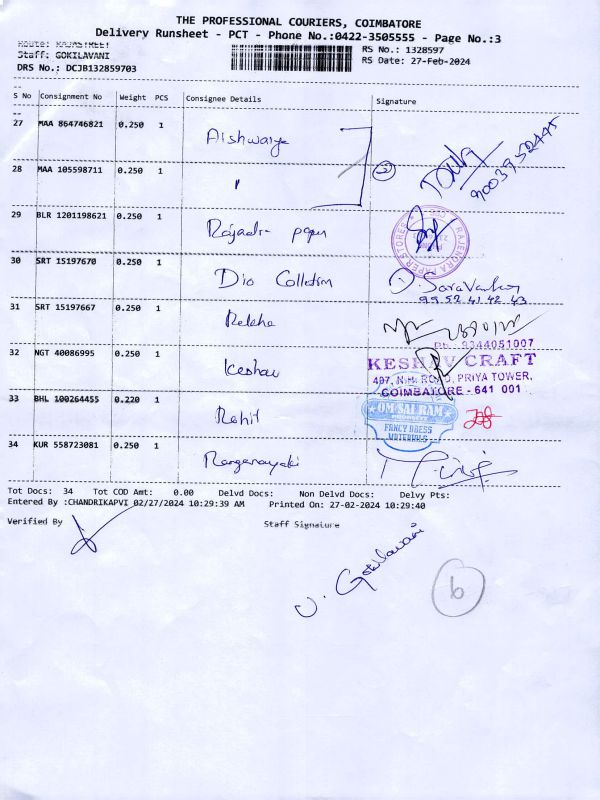 THE PROFESSIONAL COURIERS, COIMBATORE
Delivery Runsheet - PCT - Phone No.:0422-3505555 - Page No.:3
Route: RAJASTREET
Staff: GOKILAVANI
DRS No.: DCJB132859703
RS No.: 1328597
RS Date: 27-Feb-2024
S No Consignment No Weight PCS Consignee Details Signature
27 MAA 864746821 0.250 1 Aishwarya
9003952445
28 MAA 105598711 0.250 1 "
2
29 BLR 1201198621 0.250 1
RAJENDRA PAPER STORES
30 SRT 15197670 0.250 1 Dio Collection
99524 42 43
31 SRT 15197667 0.250 1 Rekha
32 NGT 40086995 0.250 1 Keshav
9344051007
KESHAV CRAFT
PRIYA TOWER,
COIMBATORE - 641 001
33 BHL 100264455 0.220 1 Rohit
OM SAI RAM
FANCY DRESS
MATERIALS
34 KUR 558723081 0.250 1 Ranganayaki
Tot Docs: 34 Tot COD Amt: 0.00 Delvd Docs: Non Delvd Docs: Delvy Pts:
Entered By :CHANDRIKAPVI 02/27/2024 10:29:39 AM Printed On: 27-02-2024 10:29:40
Verified By Staff Signature
V. Gokilavani
6